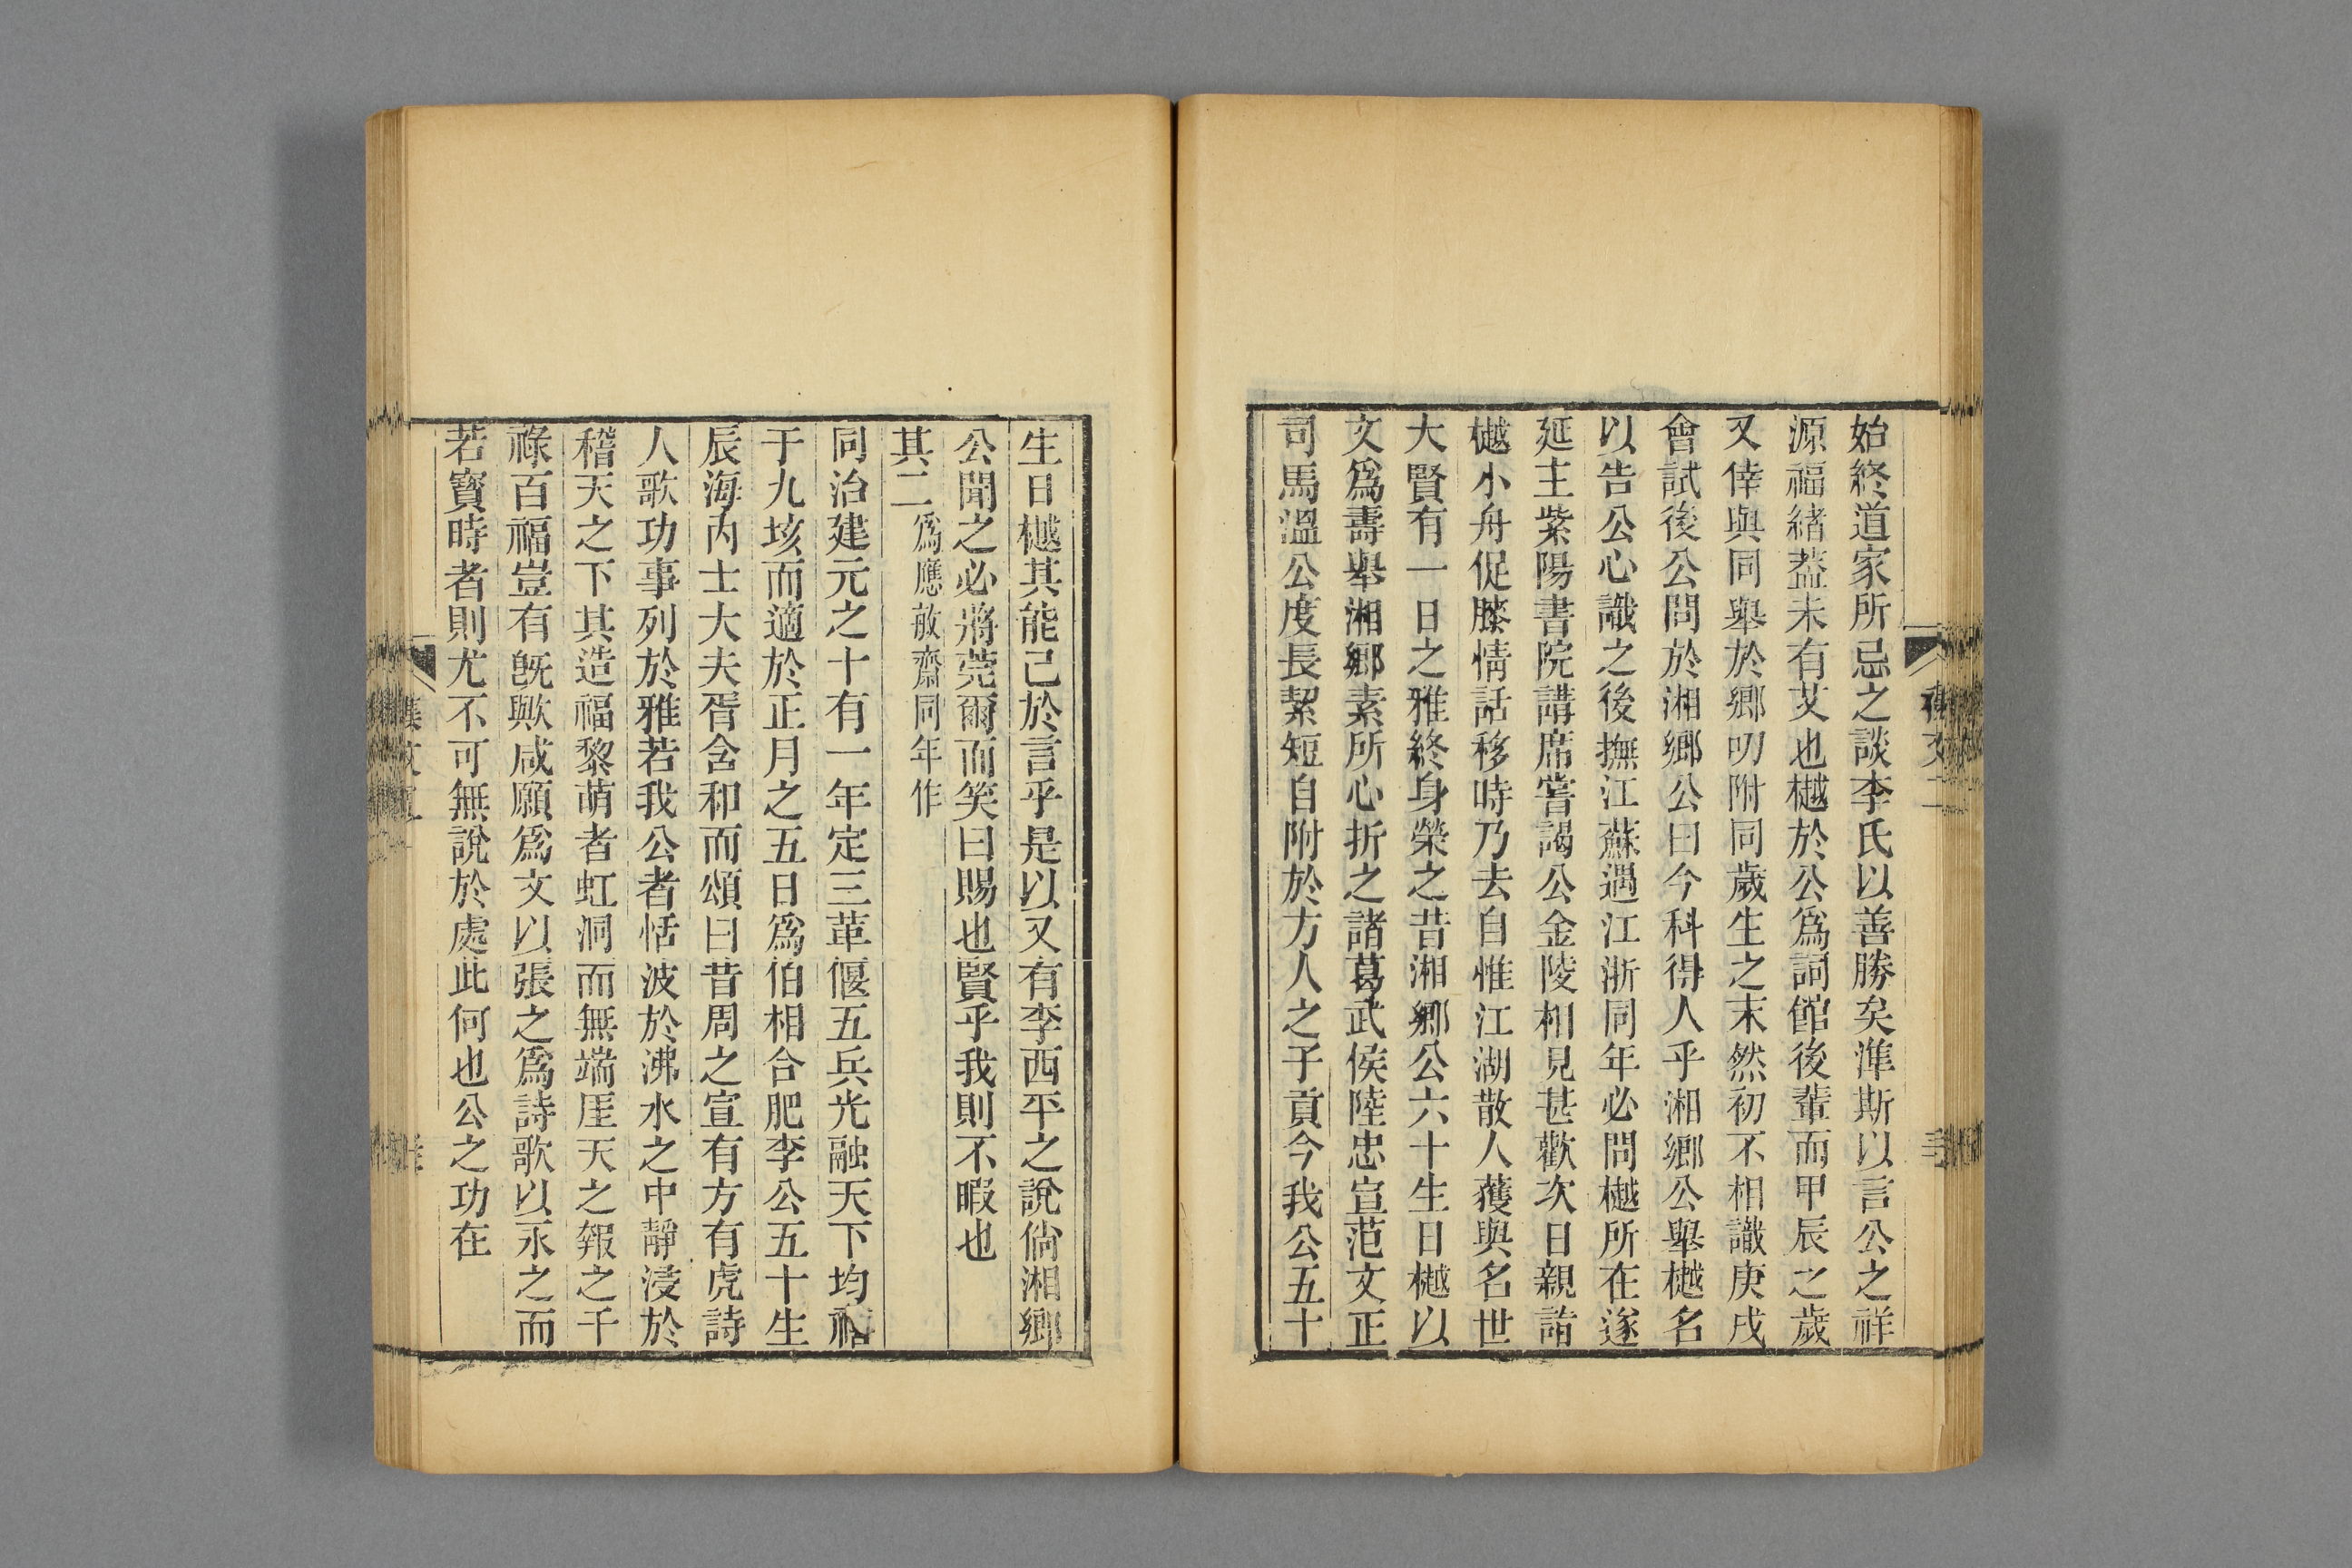 始終道家所忌之談李氏以善勝矣準斯以言公之祥
源福緒葢未有艾也樾於公爲詞館後輩而甲辰之歲
又倖與同舉於鄉叨附同歲生之末然初不相識庚戌
會試後公問於湘鄉公曰今科得人乎湘鄉公舉樾名
以告公心識之後撫江蘇遇江浙同年必問樾所在遂
延主紫陽書院講席嘗謁公金陵相見甚歡次日親詣
樾小舟促膝情話移時乃去自惟江湖散人獲與名世
大賢有一日之雅終身榮之昔湘鄉公六十生日樾以
文爲壽舉湘鄉素所心折之諸葛武侯陸忠宣范文正
司馬溫公度長絜短自附於方人之子貢今我公五十
生日樾其能已於言乎是以又有李西平之說倘湘鄉
公聞之必將莞爾而笑曰賜也賢乎我則不暇也
其二爲應敏齋同年作
同治建元之十有一年定三革偃五兵光融天下均禧
于九垓而適於正月之五日爲伯相合肥李公五十生
辰海內士大夫胥含和而頌曰昔周之宣有方有虎詩
人歌功事列於雅若我公者恬波於沸水之中靜浸於
稽天之下其造福黎萌者虹洞而無端厓天之報之千
祿百福豈有旣歟咸願爲文以張之爲詩歌以永之而
若寶時者則尤不可無說於處此何也公之功在